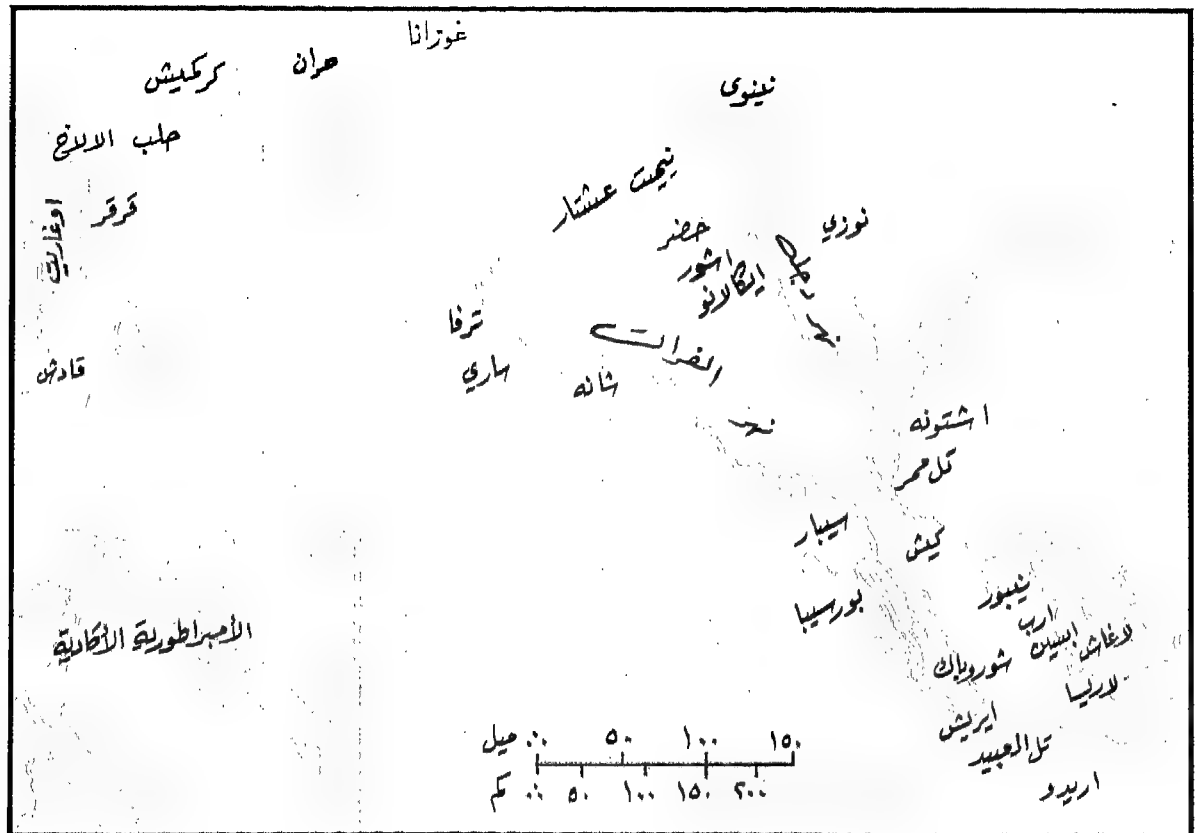 غوزانا
كركميش
حران
نينوى
حلب
الالاخ
قرقر
اوغاريت
نيميت عشتار
حضر
اشور
ايكالاتو
نوزي
نهر دجلة
ترقا
ماري
عانه
نهر الفرات
قادش
اشنونه
تل حمر
سيبار
كيش
بورسيبا
نيبور
ارب
ايسين
لاغاش
شوروباك
لاريسا
ايريش
تل العبيد
اريدو
الأمبراطورية الأكادية
ميل ٠ ٥٠ ١٠٠ ١٥٠
كم ٠ ٥٠ ١٠٠ ١٥٠ ٢٠٠